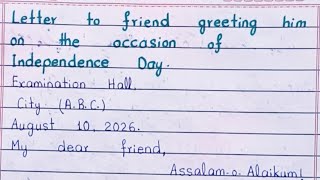 Letter to friend greeting him
on the occasion of
Independence Day.
Examination Hall,
City (A.B.C.)
August 10, 2026.
My dear friend,
Assalam-o-Alaikum!